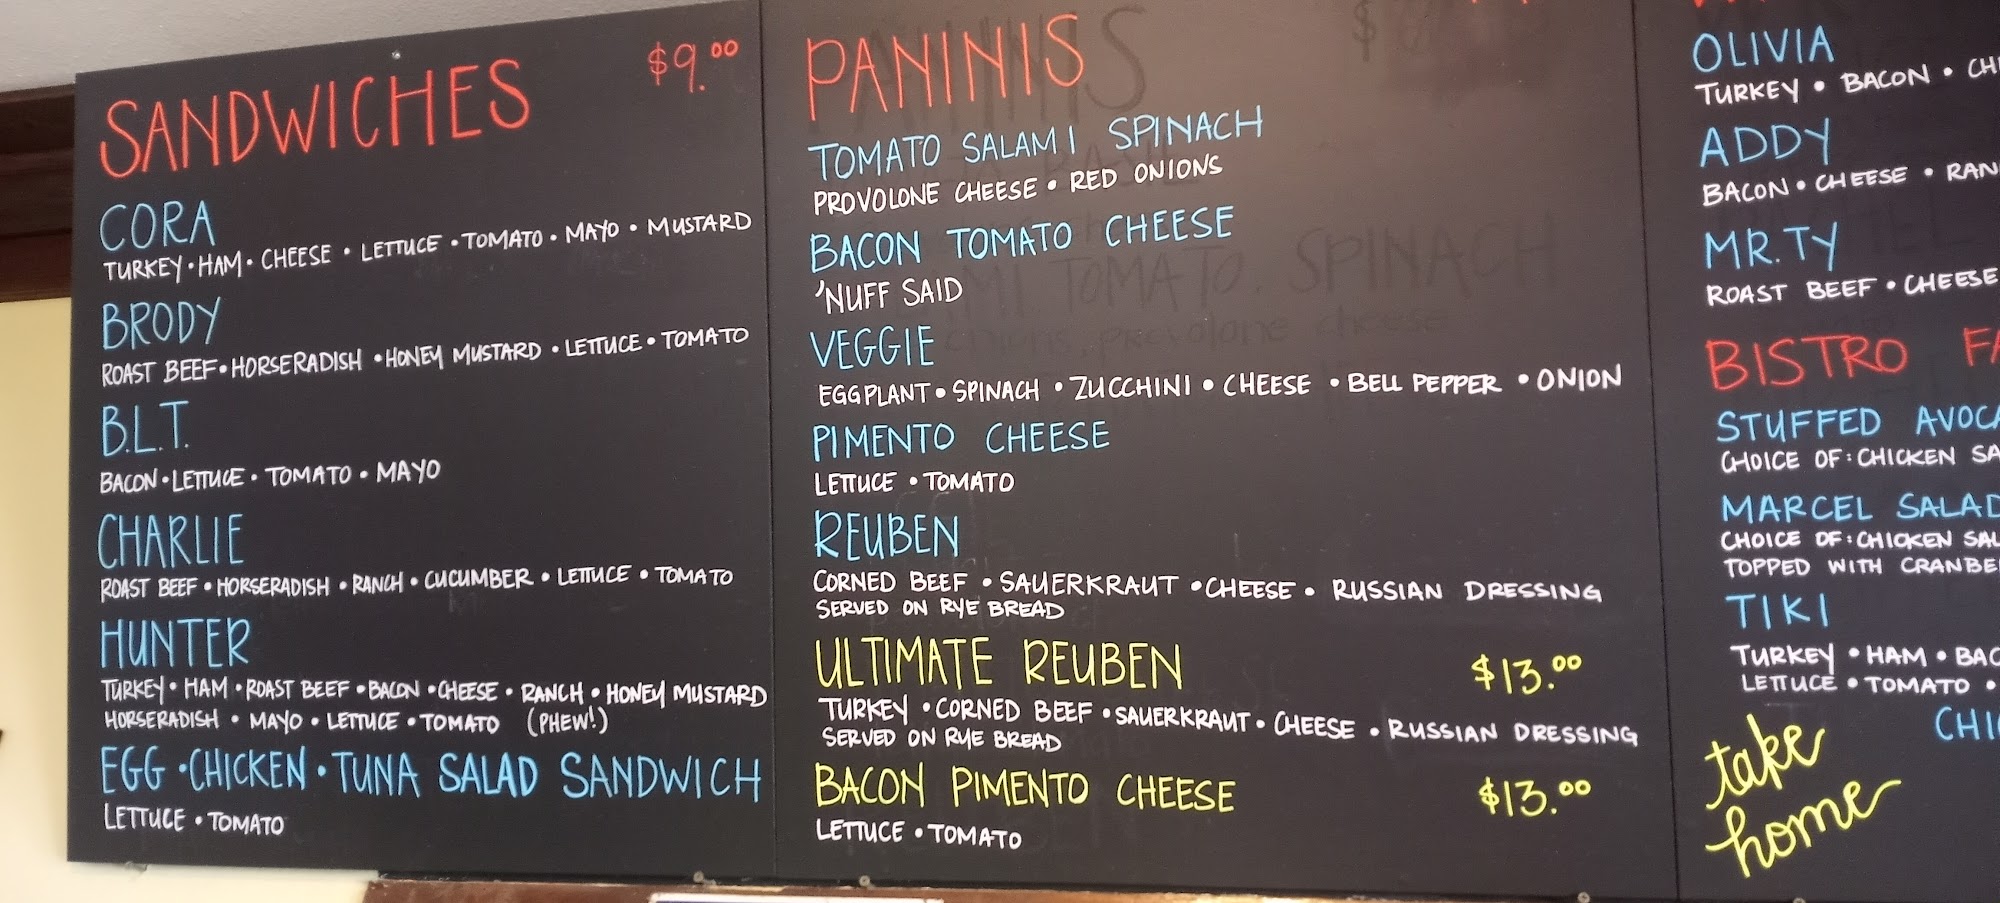 SANDWICHES $9.00
CORA
TURKEY • HAM • CHEESE • LETTUCE • TOMATO • MAYO • MUSTARD
BRODY
ROAST BEEF • HORSERADISH • HONEY MUSTARD • LETTUCE • TOMATO
B.L.T.
BACON • LETTUCE • TOMATO • MAYO
CHARLIE
ROAST BEEF • HORSERADISH • RANCH • CUCUMBER • LETTUCE • TOMATO
HUNTER
TURKEY • HAM • ROAST BEEF • BACON • CHEESE • RANCH • HONEY MUSTARD
HORSERADISH • MAYO • LETTUCE • TOMATO (PHEW!)
EGG • CHICKEN • TUNA SALAD SANDWICH
LETTUCE • TOMATO
PANINIS
TOMATO SALAMI SPINACH
PROVOLONE CHEESE • RED ONIONS
BACON TOMATO CHEESE
'NUFF SAID
VEGGIE
EGGPLANT • SPINACH • ZUCCHINI • CHEESE • BELL PEPPER • ONION
PIMENTO CHEESE
LETTUCE • TOMATO
REUBEN
CORNED BEEF • SAUERKRAUT • CHEESE • RUSSIAN DRESSING
SERVED ON RYE BREAD
ULTIMATE REUBEN $13.00
TURKEY • CORNED BEEF • SAUERKRAUT • CHEESE • RUSSIAN DRESSING
SERVED ON RYE BREAD
BACON PIMENTO CHEESE $13.00
LETTUCE • TOMATO
OLIVIA
TURKEY • BACON •
ADDY
BACON • CHEESE •
MR. TY
ROAST BEEF • CHEESE
BISTRO
STUFFED
CHOICE OF: CHICKEN
MARCEL SALAD
CHOICE OF: CHICKEN
TOPPED WITH
TIKI
TURKEY • HAM •
LETTUCE • TOMATO •
take
home